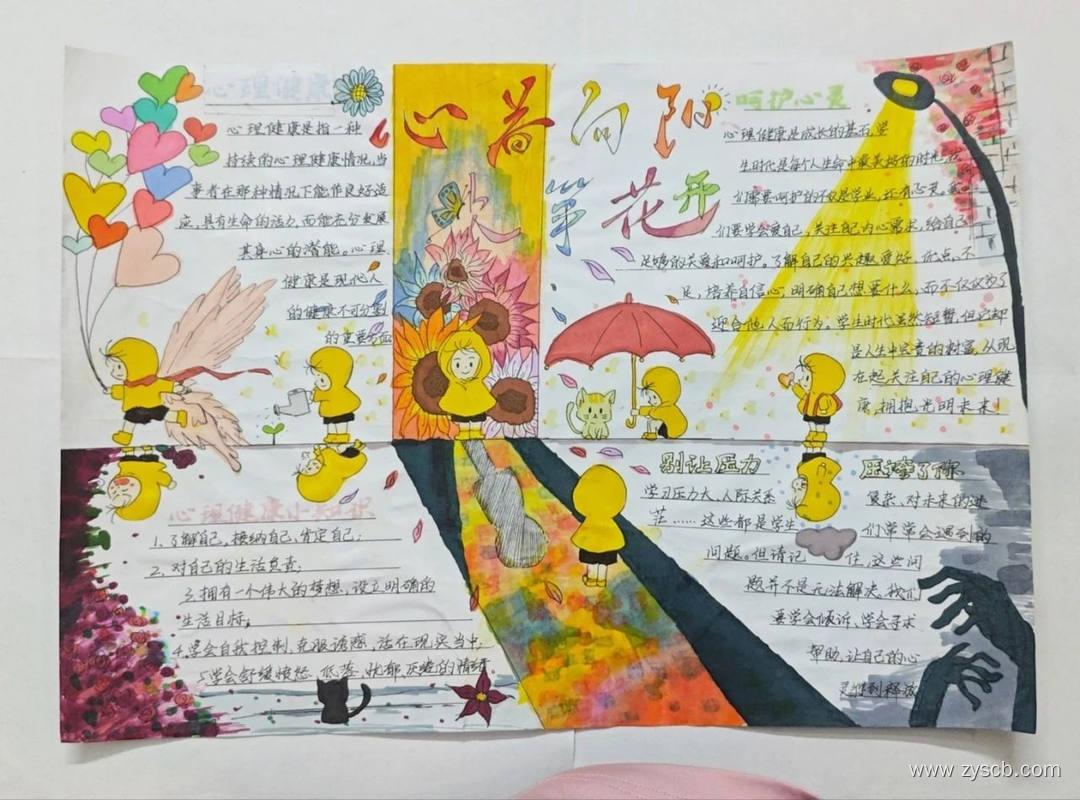 心理健康
心理健康是指一种
持续的心理健康情况,当
事者在那种情况下能作良好适
应,具有生命的活力,而能充分发展
其身心的潜能。心理
健康是现代人
的健康不可分割
的重要方面
心若向阳
花开
呵护心灵
心理健康是成长的基石,学
生时代是每个人生命中最美好的时光,我
们需要呵护的不仅是学业,还有心灵。我
们要学会爱自己,关注自己内心需求,给自己
足够的关爱和呵护。了解自己的兴趣爱好、优点、不
足,培养自信心,明确自己想要什么,而不仅仅为了
迎合他人而行为。学生时代虽然短暂,但它却
是人生中宝贵的财富,从现
在起,关注自己的心理健
康,拥抱光明未来!
心理健康小知识
1.了解自己,接纳自己,肯定自己;
2.对自己的生活负责;
3.拥有一个伟大的梦想、设立明确的
生活目标;
4.学会自我控制,克服诱惑,活在现实当中;
5.学会舒缓愤怒、低落、忧郁、厌倦的情绪
别让压力 压垮了你
学习压力大、人际关系 复杂、对未来的迷
茫……这些都是学生 们常常会遇到的
问题。但请记 住,这些问
题并不是无法解决,我们
要学会倾诉,学会寻求
帮助,让自己的心
灵得到释放
www.zyscb.com